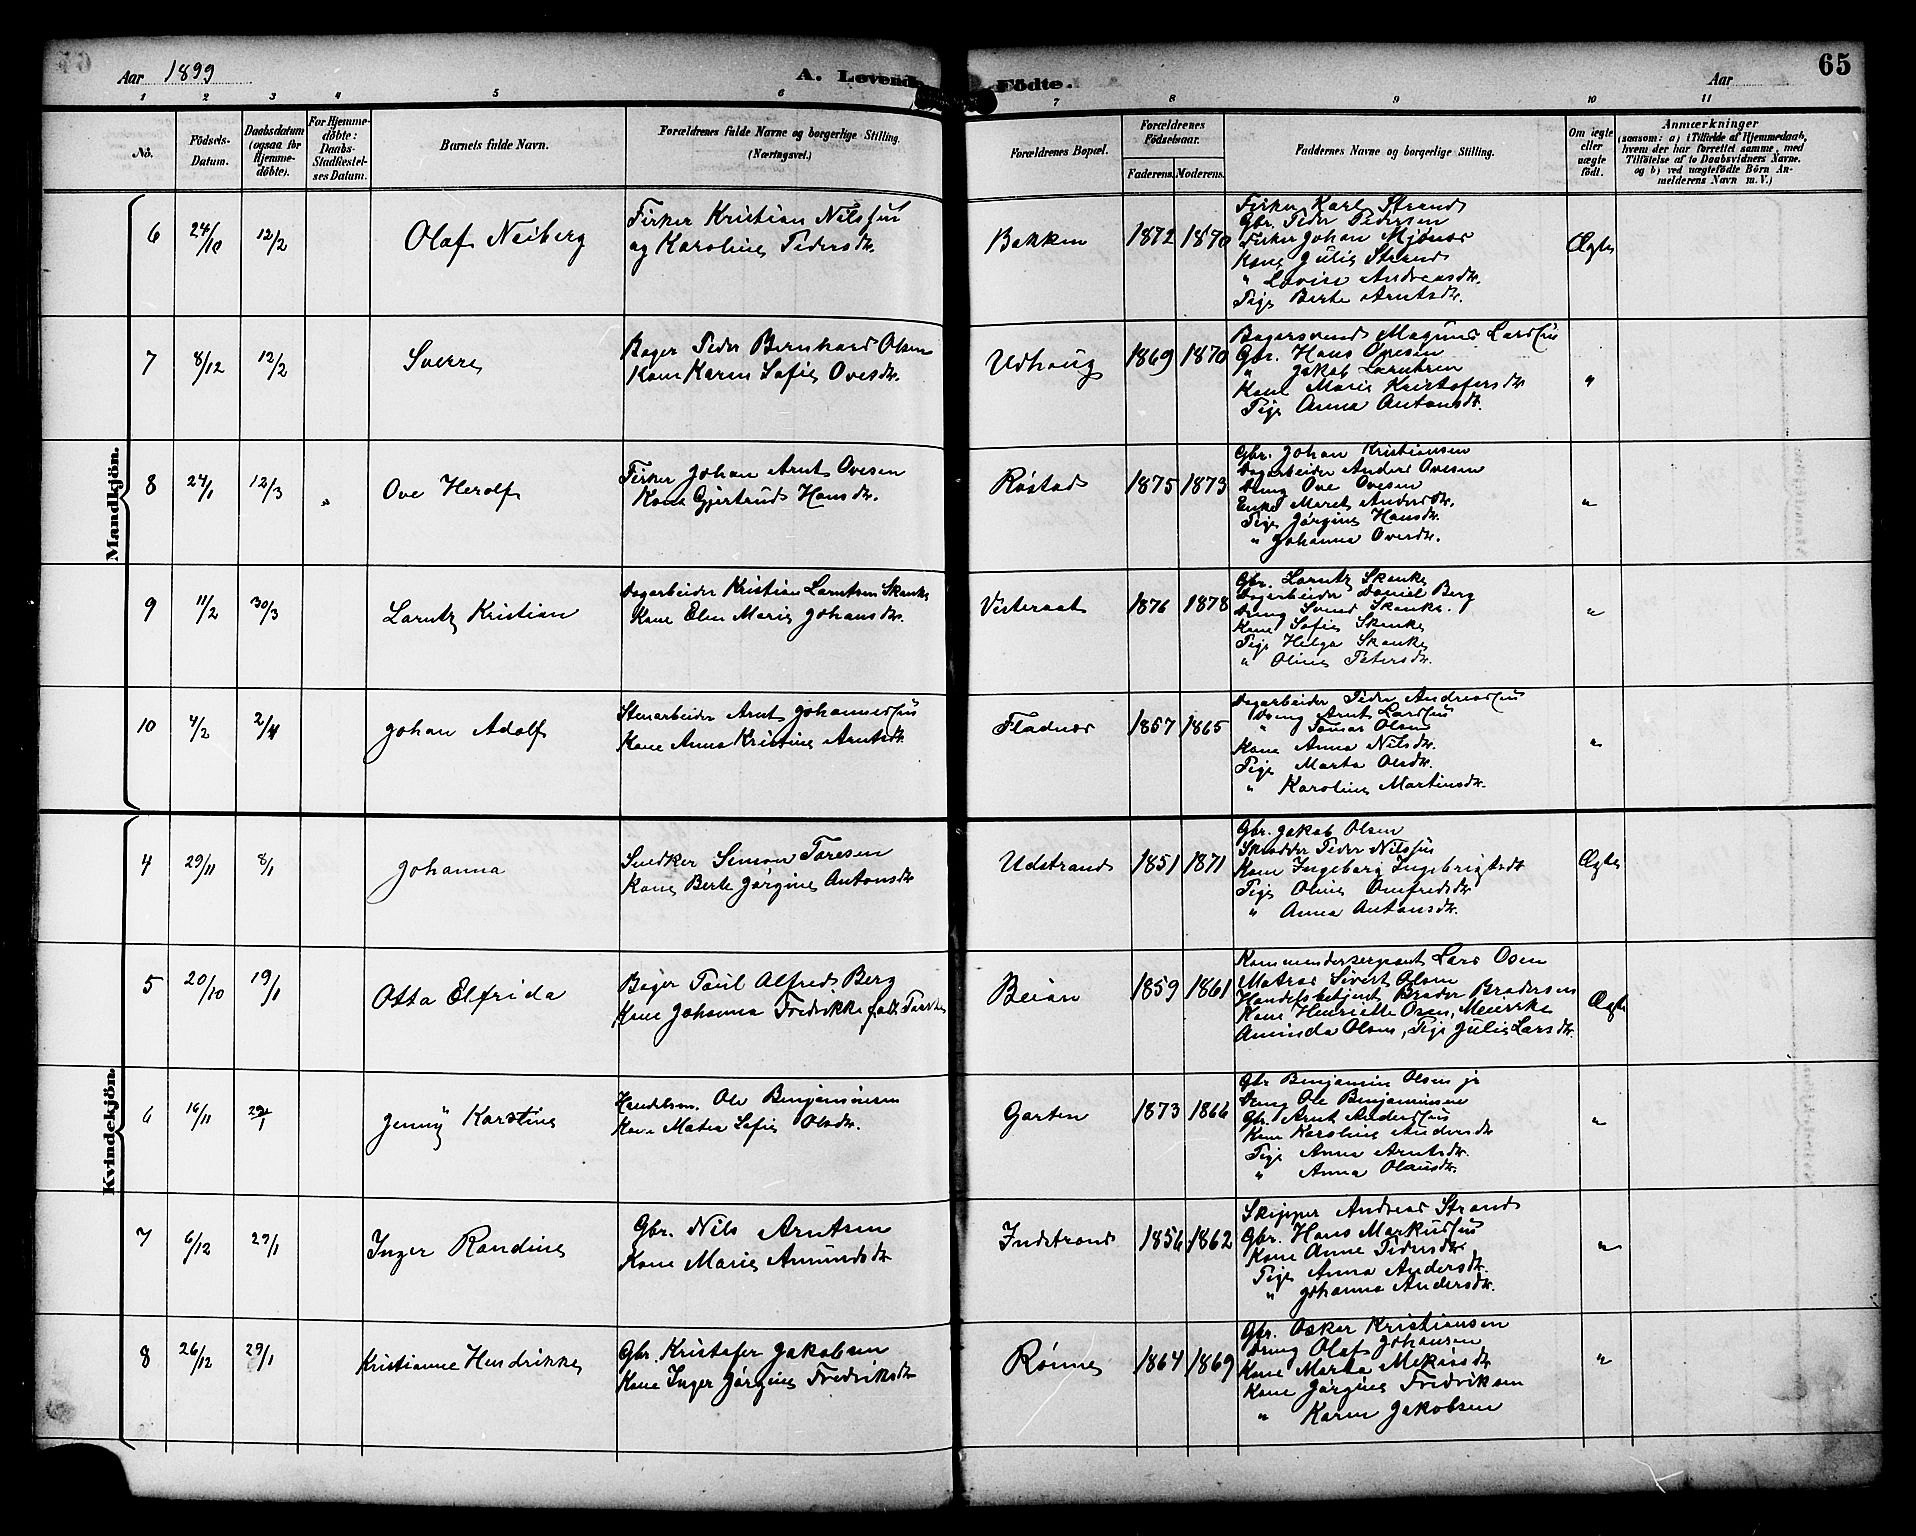 Aar 1899
A. Levende Födte.
Aar
65
1 2 3 4 5 6 7 8 9 10 11
No.
Födsels-Datum.
Daabsdatum (ogsaa for Hjemme-döbte).
For Hjemme-döbte: Daabs-Stadfæstel-ses Datum.
Barnets fulde Navn.
Forældrenes fulde Navne og borgerlige Stilling. (Næringsvei.)
Forældrenes Bopæl.
Forældrenes Födselsaar.
Faderens. Moderens.
Faddernes Navne og borgerlige Stilling.
Om ægte eller uægte födt.
Anmærkninger
(saasom: a) i Tilfælde af Hjemmedaab, hvem der har forrettet samme, med Tilföielse af to Daabsvidners Navne. og b) ved uægtefödte Börn An-melderens Navn m. V.)
Mandkjön.
6 24/10 12/2 Olaf Neiberg
Firker Kristian Nilssen
og Karoline Pedersdtr.
Bakken 1872 1870
Firker Karl Strand
Gbr. Peder Pedersen
Firker Johan Mjönes
Kone Julie Strand
" Lovise Andreasdtr.
Pige Berte Arntsdtr.
Ægte
7 8/12 12/2 Sverre
Bager Peder Bernhard Olsen
Kone Karen Sofie Ovesdtr.
Udhaug 1869 1870
Bagersvend Magnus Larssen
Gbr. Hans Ovesen
" Jakob Larntsen
Kone Marie Kristofersdtr
Pige Anna Antonsdtr.
"
8 24/1 12/3 " Ove Herolf
Firker Johan Arnt Ovesen
Kone Gjertrud Hansdtr.
Röstad 1875 1873
Gbr. Johan Kristiansen
Dagarbeider Anders Ovesen
Dreng Ove Ovesen
Enke Maret Andersdtr.
Pige Jörgine Hansdtr.
" Johanna Ovesdtr.
"
9 11/2 30/3 Larntz Kristian
Dagarbeider Kristian Larntsen Skanke
Kone Elen Marie Johansdtr.
Visteraat 1876 1878
Gbr. Larntz Skanke
Dagarbeider Daniel Berg
Dreng Svend Skanke.
Kone Sofie Skanke
Pige Helga Skanke
" Oline Petersdtr.
"
10 4/2 2/4 Johan Adolf
Stenarbeider Arnt Johannessen
Kone Anna Kristine Arntsdtr
Fladnes 1857 1865
Dagarbeider Peder Andreassen
Dreng Arnt Larssen
" Tomas Olsen
Kone Anna Nilsdtr.
Pige Marta Olsdtr.
" Karoline Martinsdtr.
"
Kvindekjön.
4 29/11 8/1 Johanna
Snedker Simon Toresen
Kone Berte Jörgine Antonsdtr
Udstrand 1851 1871
Gbr. Jakob Olsen
Skredder Peder Nilssen
Kone Ingeborg Ingebrigtsdtr
Pige Oline Omfredsdtr
" Anna Antonsdtr.
Ægte
5 20/10 19/1 Otta Elfrida
Bager Paul Alfred Berg
Kone Johanna Fredrikke
Beian 1859 1861
Kommandersergeant Lars Osen
Matros Sivert Olsen
Handelsbetjent Brader Bradersen
Kone Henriette Osen, Meierske
Aminda Olsen, Pige Julie Larsdtr.
Ægte
6 16/11 29/1 Jenny Karstine
Handelsm. Ole Benjaminsen
Kone Matea Sofie Olsdtr.
Garten 1873 1866
Gbr Benjamin Olsen jr
Dreng Ole Benjaminsen
Gbr. Arnt Anderssen
Kone Karoline Andersdtr
Pige Anna Arntsdtr.
" Anna Olausdtr.
"
7 6/12 29/1 Inger Randine
Gbr. Nils Arntsen
Kone Marie Amundsdtr
Indstrand 1856 1862
Skipper Andreas Strand
Gbr. Hans Markussen
Kone Anne Pedersdtr
Pige Anna Andersdtr.
" Johanna Andersdtr.
"
8 26/12 29/1 Kristianne Hendrikke
Gbr. Kristofer Jakobsen
Kone Inger Jörgine Fredriksdtr
Rönne 1864 1869
Gbr. Oskar Kristiansen
Dreng Olaf Johansen
Kone Marta Mekisdtr
Kone Jörgine Fredriksen
" Karen Jakobsen
"